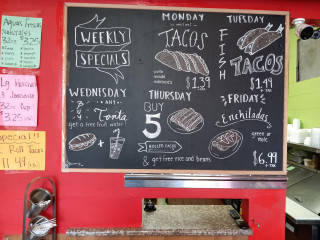 Aguas Frescas
Naturales
32oz $3.25
Lg Horchata
& Jamaica
32oz Cup
3.25
Special!!
Roll Tacos
11.49
WEEKLY
SPECIALS
MONDAY
TACOS
$1.39
TUESDAY
FISH
TACOS
$1.49
+ TAX
WEDNESDAY
ANY
Torta
get a free fruit water
THURSDAY
BUY
5
ROLLED TACOS
& get free rice and beans
FRIDAY
Enchiladas
green or
mole
$6.99
+ TAX